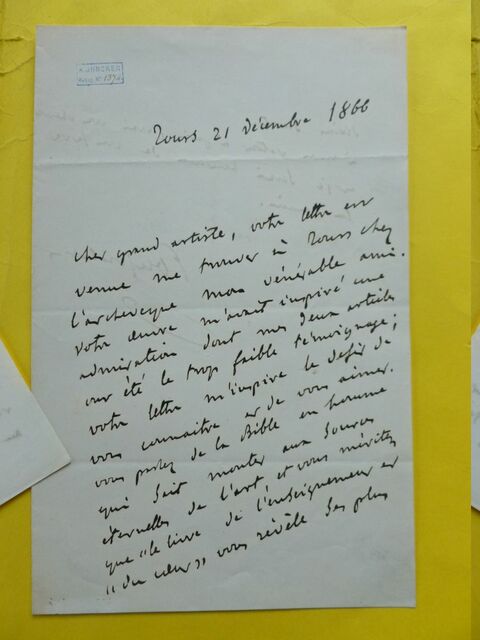 Tours 21 décembre 1866
cher grand artiste, votre lettre est
venue me trouver à Tours chez
l'archevêque mon vénérable ami.
votre œuvre m'avait inspiré une
admiration dont mes deux articles
ont été le trop faible témoignage;
votre lettre m'inspire le désir de
vous connaitre et de vous aimer.
vous parlez de la Bible en homme
qui sait monter aux sources
éternelles de l'art, et vous méritez
que "le livre de l'enseignement et
"du cœur" vous révèle ses plus